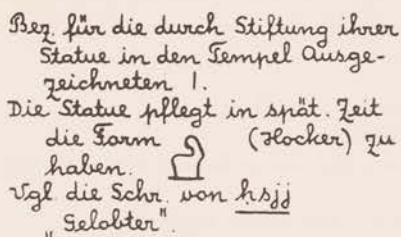 Bez. für die durch Stiftung ihrer
Statue in den Tempel Ausge-
zeichneten I.
Die Statue pflegt in spät. Zeit
die Form (Hocker) zu
haben.
Vgl. die Schr. von ḥsjj
„Gelobter".